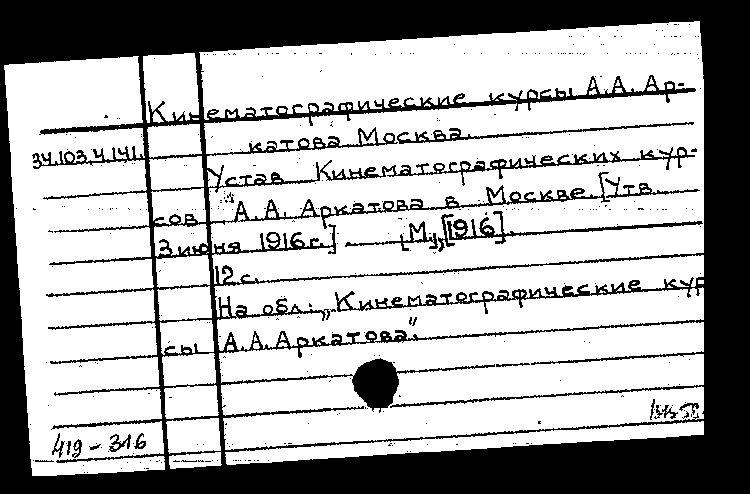 Кинематографические курсы А.А. Ар-
катова Москва.
34.103.4.141.
Устав Кинематографических кур-
сов А.А. Аркатова в Москве. [Утв.
3 июня 1916 г.] - [М.], [1916].
12 с.
На обл.: „Кинематографические кур
сы А.А. Аркатова".
419-316